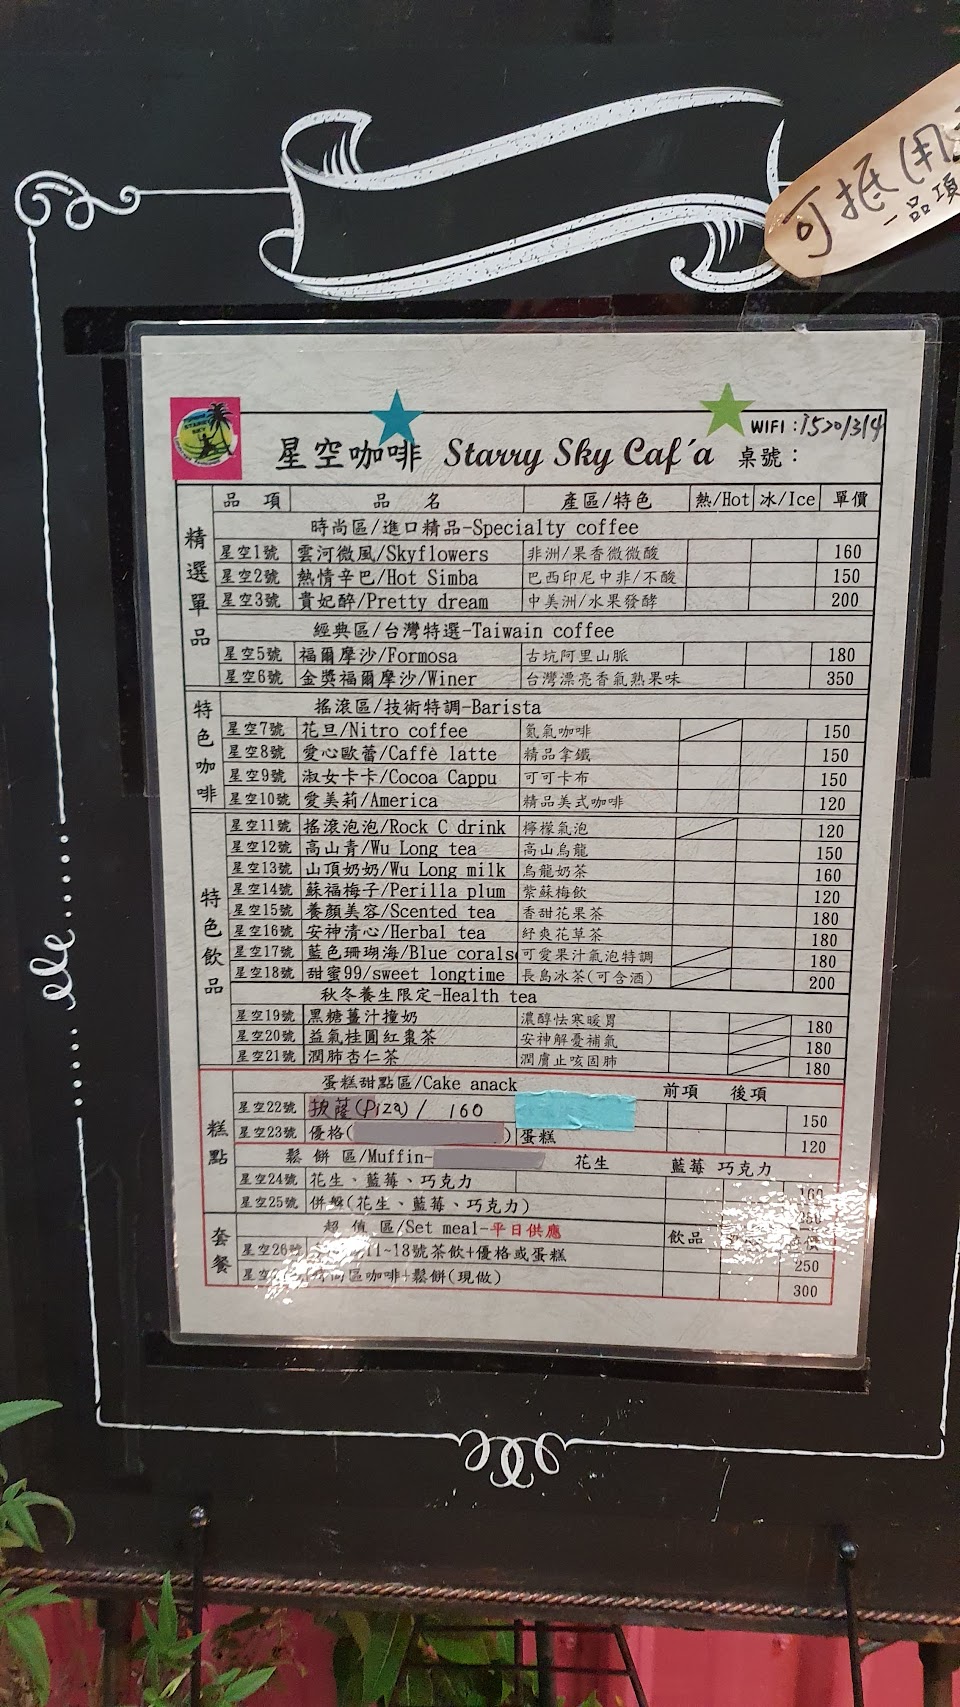 可抵用
一品項
WIFI :
星空咖啡 Starry Sky Caf´a 桌號：
品 項 品 名 產區/特色 熱/Hot 冰/Ice 單價
精選單品
時尚區/進口精品-Specialty coffee
星空1號 雲河微風/Skyflowers 非洲/果香微微酸 160
星空2號 熱情辛巴/Hot Simba 巴西印尼中非/不酸 150
星空3號 貴妃醉/Pretty dream 中美洲/水果發酵 200
經典區/台灣特選-Taiwain coffee
星空5號 福爾摩沙/Formosa 古坑阿里山脈 180
星空6號 金獎福爾摩沙/Winer 台灣漂亮香氣熟果味 350
特色咖啡
搖滾區/技術特調-Barista
星空7號 花旦/Nitro coffee 氮氣咖啡 150
星空8號 愛心歐蕾/Caffè latte 精品拿鐵 150
星空9號 淑女卡卡/Cocoa Cappu 可可卡布 150
星空10號 愛美莉/America 精品美式咖啡 120
特色飲品
星空11號 搖滾泡泡/Rock C drink 檸檬氣泡 120
星空12號 高山青/Wu Long tea 高山烏龍 150
星空13號 山頂奶奶/Wu Long milk 烏龍奶茶 160
星空14號 蘇福梅子/Perilla plum 紫蘇梅飲 120
星空15號 養顏美容/Scented tea 香甜花果茶 180
星空16號 安神清心/Herbal tea 紓爽花草茶 180
星空17號 藍色珊瑚海/Blue corals 可愛果汁氣泡特調 180
星空18號 甜蜜99/sweet longtime 長島冰茶(可含酒) 200
秋冬養生限定-Health tea
星空19號 黑糖薑汁撞奶 濃醇怯寒暖胃 180
星空20號 益氣桂圓紅棗茶 安神解憂補氣 180
星空21號 潤肺杏仁茶 潤膚止咳固肺 180
糕點
蛋糕甜點區/Cake anack 前項 後項
星空22號 披薩(Piza) / 160 150
星空23號 優格( ) 蛋糕 120
鬆餅區/Muffin- 花生 藍莓 巧克力
星空24號 花生、藍莓、巧克力 160
星空25號 併盤(花生、藍莓、巧克力) 250
套餐
超值區/Set meal-平日供應 飲品
星空26號 11~18號茶飲+優格或蛋糕 250
星空 時尚區咖啡+鬆餅(現做) 300
elle